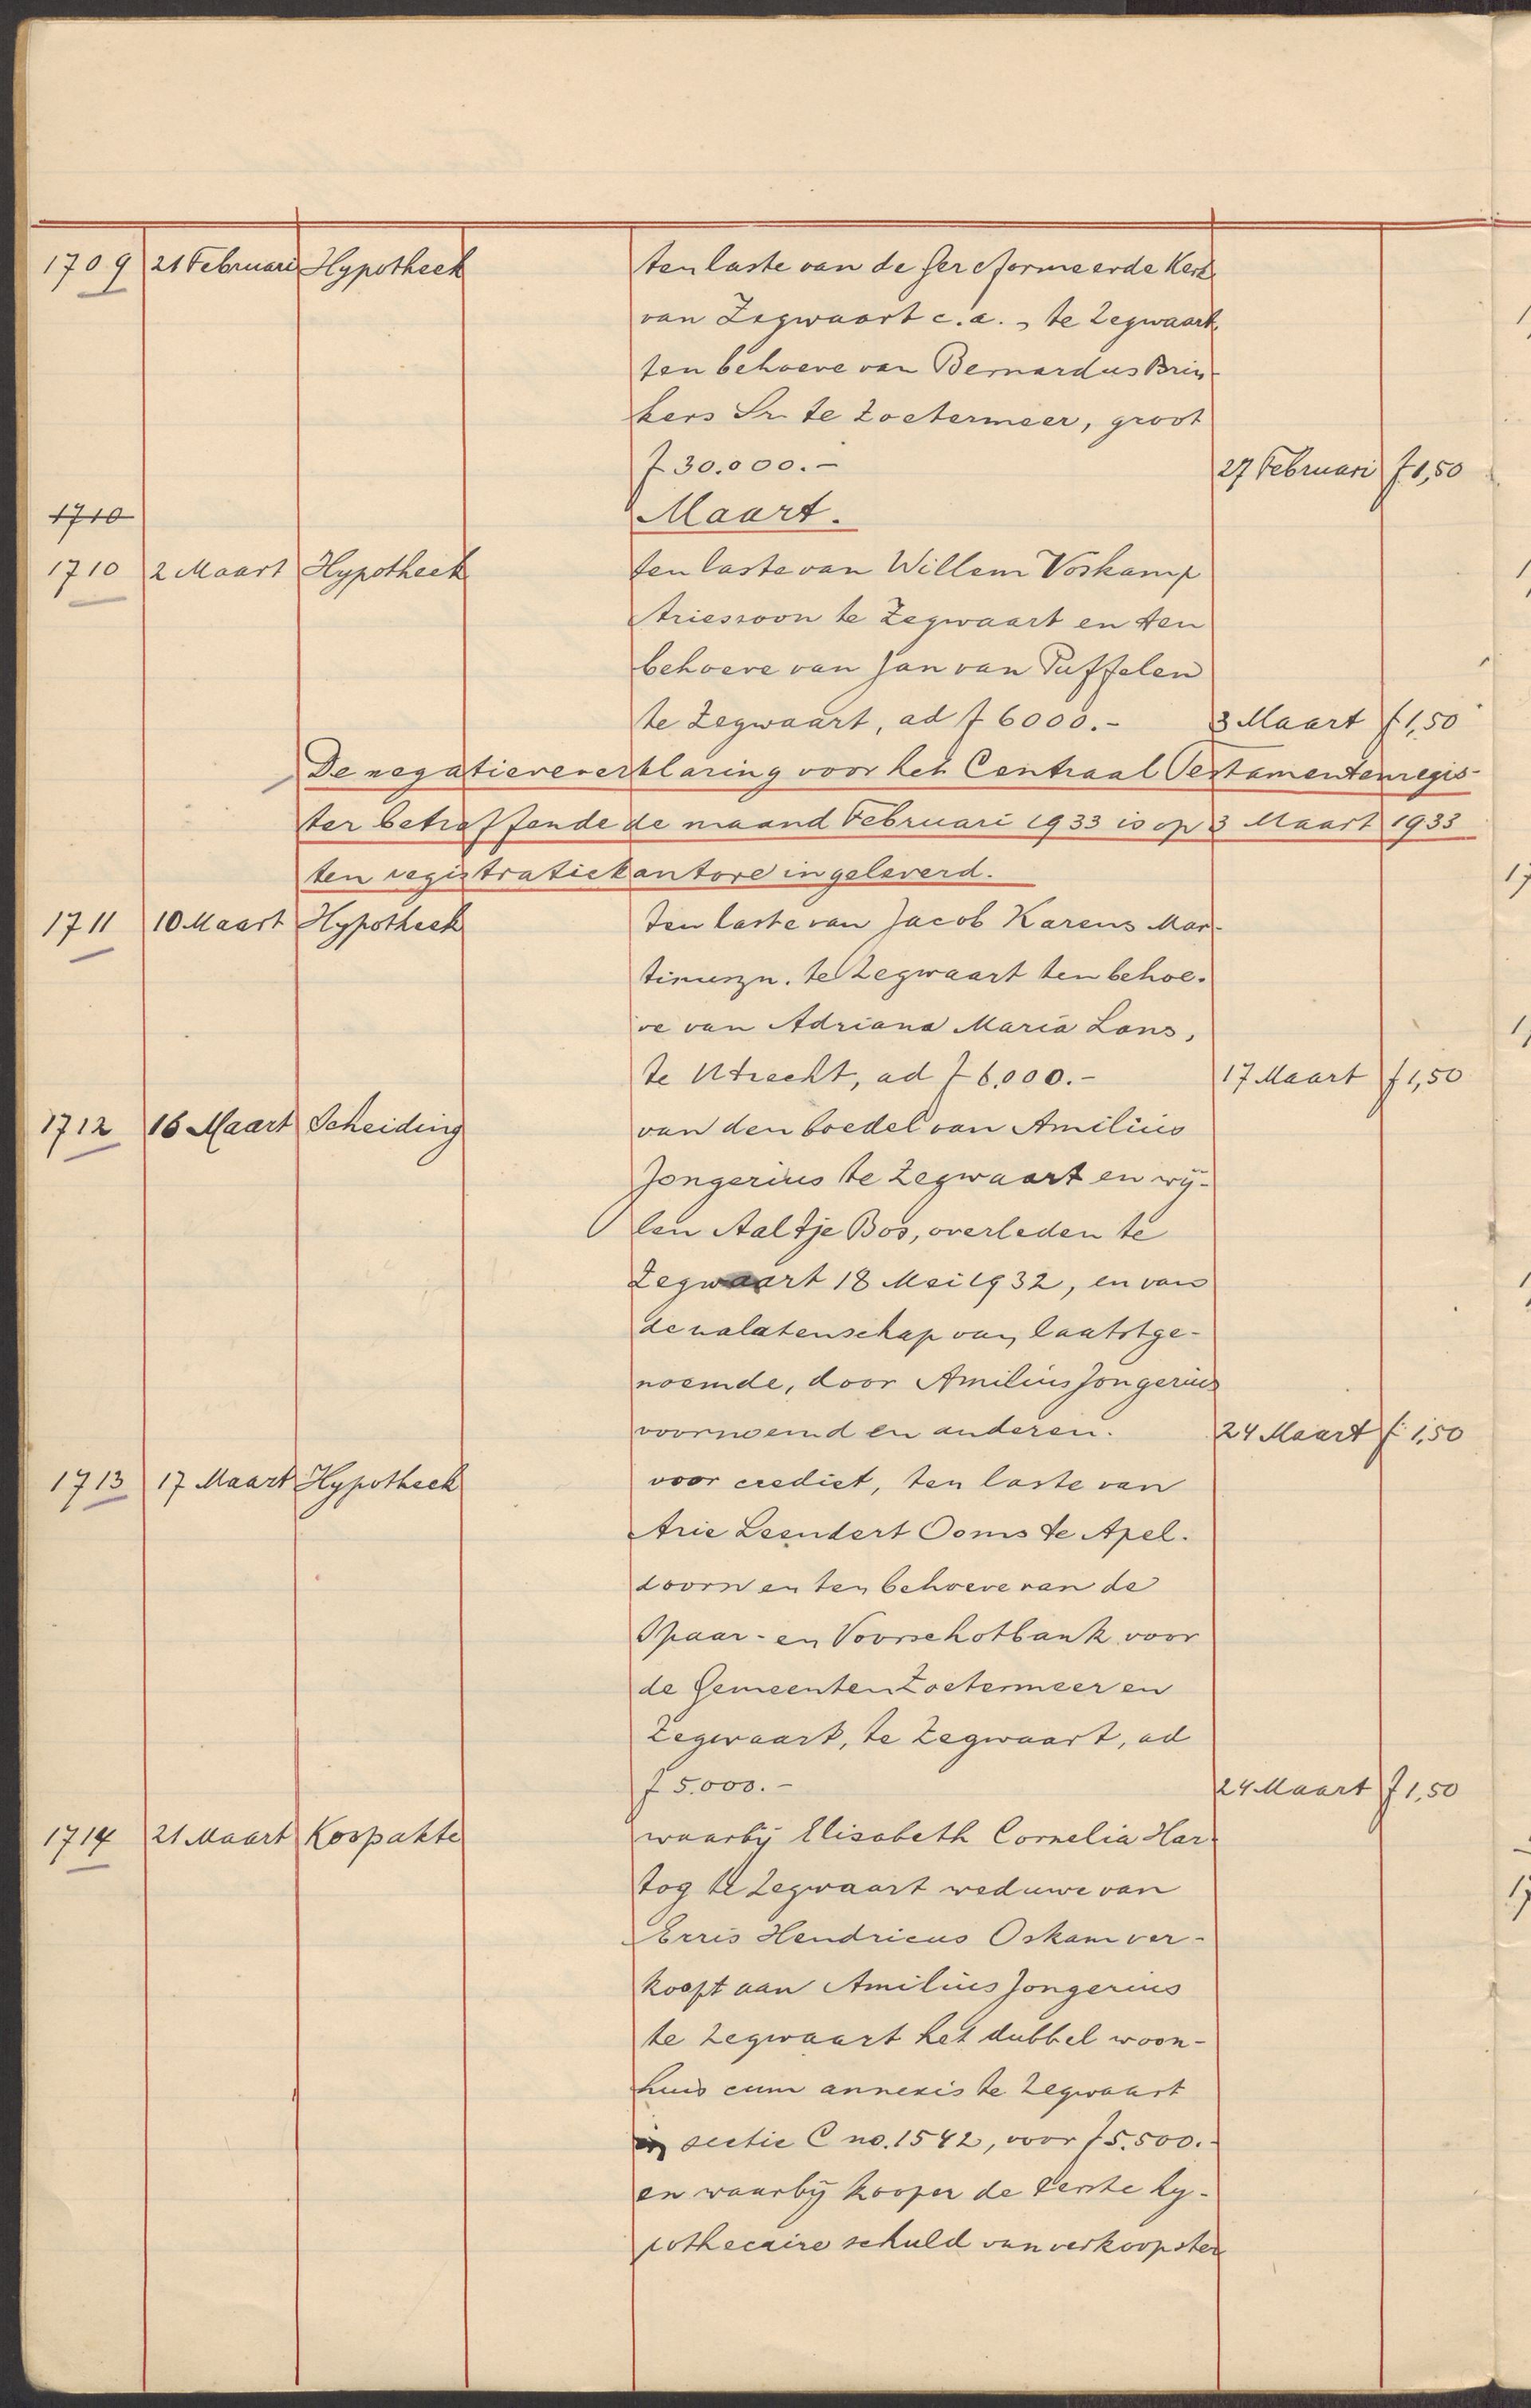 1709 21 Februari Hypotheek ten laste van de Gereformeerde Kerk
van Zegwaart c.a., te Zegwaart,
ten behoeve van Bernardus Brin-
kers Sr. te Zoetermeer, groot
f 30.000.- 27 Februari f 1,50
1710 Maart.
1710 2 Maart Hypotheek ten laste van Willem Voskamp
Ariessoon te Zegwaart en ten
behoeve van Jan van Puffelen
te Zegwaart, ad f 6000.- 3 Maart f 1,50
De negatieververklaring voor het Centraal Testamentenregis-
ter betreffende de maand Februari 1933 is op 3 Maart 1933
ten registratiekantore ingeleverd.
1711 10 Maart Hypotheek ten laste van Jacob Karens Mar-
tinuszn. te Zegwaart ten behoe-
ve van Adriana Maria Lons,
te Utrecht, ad f 6.000.- 17 Maart f 1,50
1712 16 Maart Scheiding van den boedel van Amilius
Jongerius te Zegwaart en wij-
len Aaltje Bos, overleden te
Zegwaart 18 Mei 1932, en van
de nalatenschap van laatstge-
noemde, door Amilius Jongerius
voornoemd en anderen. 24 Maart f 1,50
1713 17 Maart Hypotheek voor crediet, ten laste van
Arie Leendert Ooms te Apel-
doorn en ten behoeve van de
Spaar- en Voorschotbank voor
de Gemeenten Zoetermeer en
Zegwaart, te Zegwaart, ad
f 5.000.- 24 Maart f 1,50
1714 21 Maart Koopakte waarbij Elisabeth Cornelia Har-
tog te Zegwaart weduwe van
Erris Hendricus Oskam ver-
koopt aan Amilius Jongerius
te Zegwaart het dubbel woon-
huis cum annexis te Zegwaart
in sectie C no. 1542, voor f 5.500.-
en waarbij kooper de eerste hy-
pothecaire schuld van verkoopster